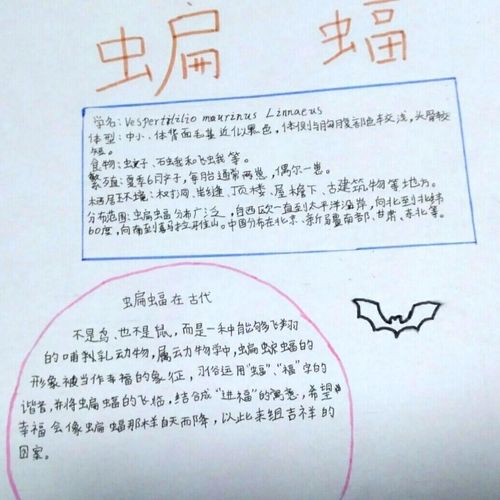 蝙 蝠
学名：Vespertilio murinus Linnaeus
体型：中小、体背面毛基近似黑色，体侧与胸腹部色较浅，头骨较
短。
食物：蚊子、飞蛾和飞虫我等。
繁殖：夏季6月产子，每胎通常两崽，偶尔一崽。
栖居环境：树洞、岩缝、顶楼、屋檐下、古建筑物等地方。
分布范围：蝙蝠分布广泛，自西欧一直到太平洋沿岸，向北到北纬
60度，向南到喜马拉牙住山。中国分布在北京、新疆南部、甘肃、东北等。
蝙蝠在古代
不是鸟、也不是鼠，而是一种能够飞翔
的哺乳动物，属动物学中，蝙蝠的
形象被当作幸福的象征，习俗运用“蝠”、“福”字的
谐音，并将蝙蝠的飞临，结合成“进福”的寓意，希望
幸福会像蝙蝠那样自天而降，以此来组吉祥的
图案。